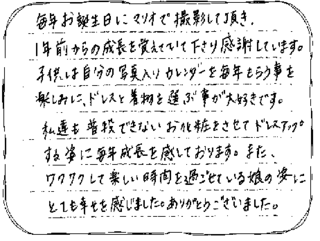 毎年お誕生日にマリオで撮影して頂き、
1年前からの成長を覚えていて下さり感謝しています。
子供は自分の写真入りカレンダーを毎年もらう事を
楽しみに、ドレスと着物を選ぶ事が大好きです。
私達も普段できないお化粧をさせてドレスアップ
する姿に毎年成長を感じております。また、
ワクワクして楽しい時間を過ごせている娘の姿に
とても幸せを感じました。ありがとうございました。